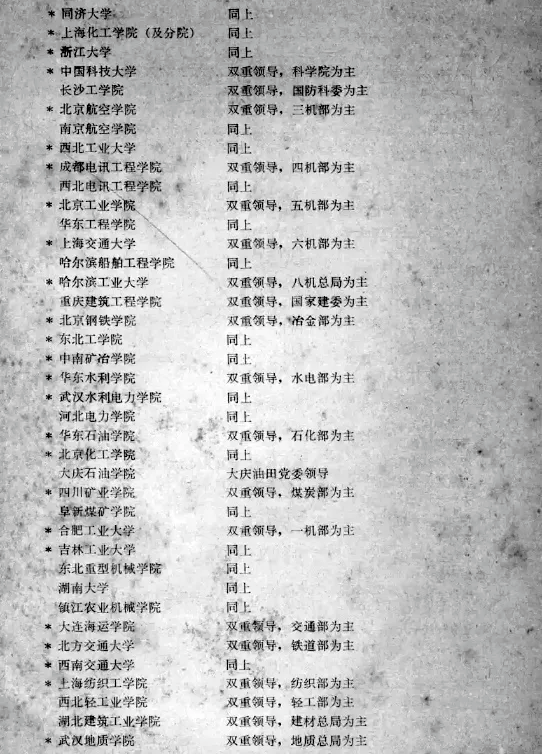 * 同济大学 同上
* 上海化工学院（及分院） 同上
* 浙江大学 同上
* 中国科技大学 双重领导，科学院为主
长沙工学院 双重领导，国防科委为主
* 北京航空学院 双重领导，三机部为主
南京航空学院 同上
* 西北工业大学 同上
* 成都电讯工程学院 双重领导，四机部为主
西北电讯工程学院 同上
* 北京工业学院 双重领导，五机部为主
华东工程学院 同上
* 上海交通大学 双重领导，六机部为主
哈尔滨船舶工程学院 同上
* 哈尔滨工业大学 双重领导，八机总局为主
重庆建筑工程学院 双重领导，国家建委为主
* 北京钢铁学院 双重领导，冶金部为主
* 东北工学院 同上
* 中南矿冶学院 同上
* 华东水利学院 双重领导，水电部为主
* 武汉水利电力学院 同上
河北电力学院 同上
* 华东石油学院 双重领导，石化部为主
* 北京化工学院 同上
大庆石油学院 大庆油田党委领导
* 四川矿业学院 双重领导，煤炭部为主
阜新煤矿学院 同上
* 合肥工业大学 双重领导，一机部为主
* 吉林工业大学 同上
东北重型机械学院 同上
湖南大学 同上
镇江农业机械学院 同上
* 大连海运学院 双重领导，交通部为主
* 北方交通大学 双重领导，铁道部为主
* 西南交通大学 同上
* 上海纺织工学院 双重领导，纺织部为主
西北轻工业学院 双重领导，轻工部为主
湖北建筑工业学院 双重领导，建材总局为主
* 武汉地质学院 双重领导，地质总局为主